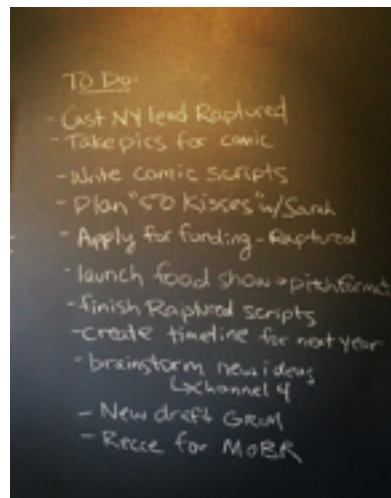 To Do:
- Cast NY lead Raptured
- Take pics for comic
- Write comic scripts
- Plan "50 Kisses" w/Sarah
- Apply for funding - Raptured
- launch food show → pitch format
- finish Raptured scripts
- create timeline for next year
- brainstorm new ideas
↳ channel 4
- New draft GRIM
- Recce for MOBR